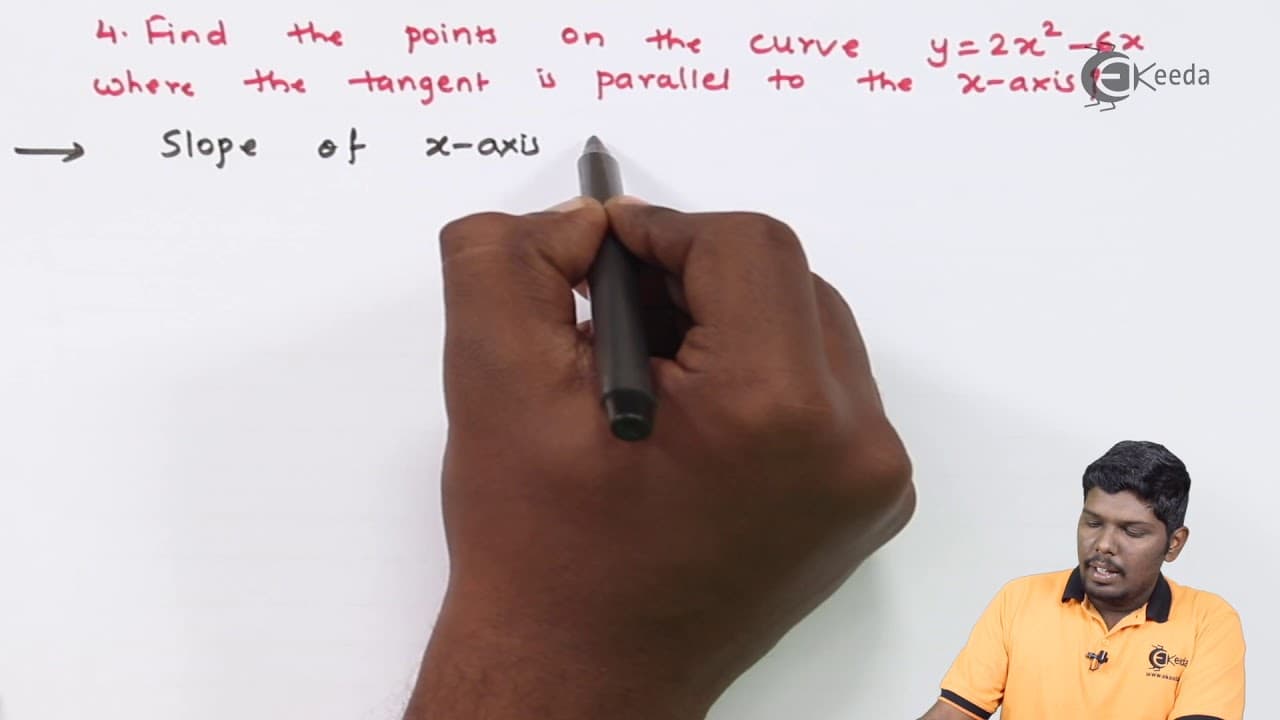 4. Find the points on the curve y = 2x² - 6x
where the tangent is parallel to the x-axis?
Keeda
→ Slope of x-axis
Keeda